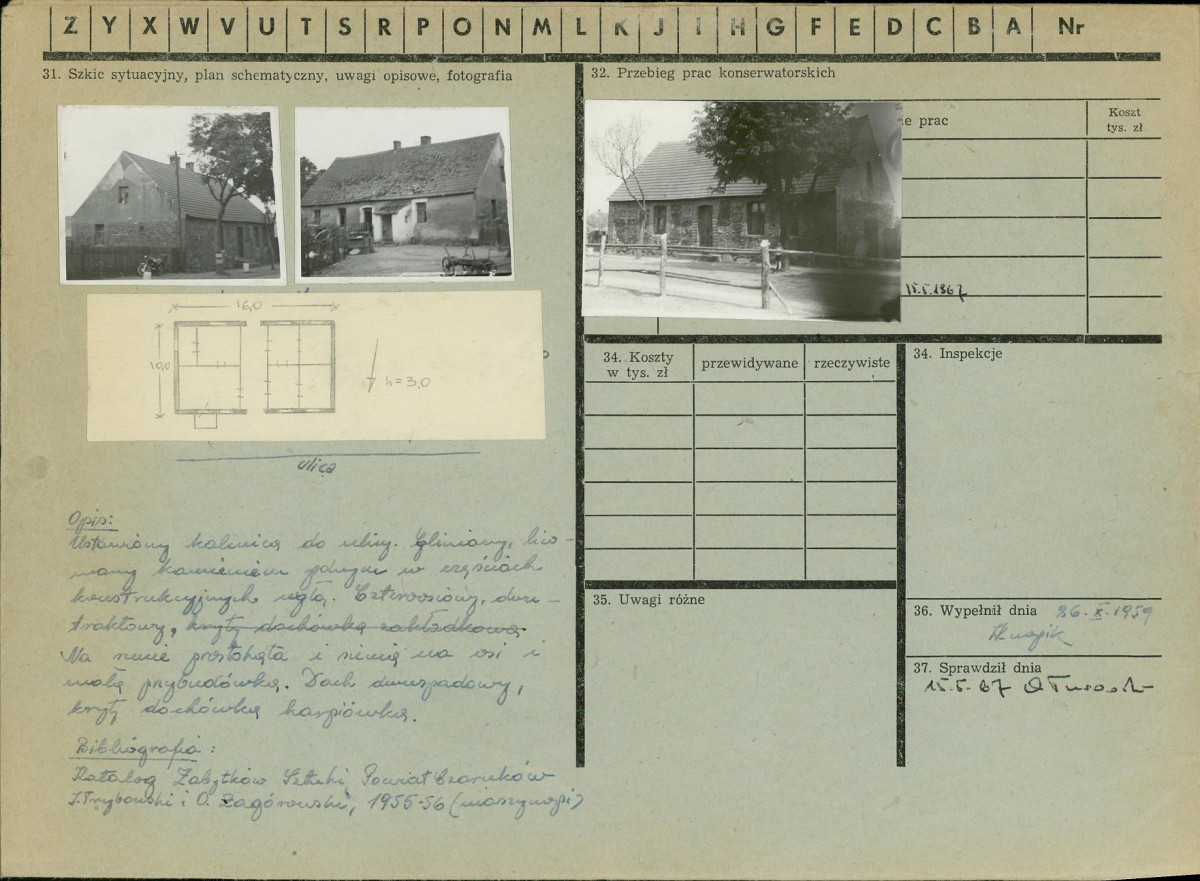 Z Y X W V U T S R P O N M L K J I H G F E D C B A Nr
31. Szkic sytuacyjny, plan schematyczny, uwagi opisowe, fotografia
16,0
10,0
h=3,0
ulica
Opis:
Ustawiony kalenicą do ulicy. Gliniany, lico-
wany kamieniem polnym w częściach
konstrukcyjnych cegłą. Czteroosiowy, dwu-
traktowy, kryty dachówką zakładkową
Na rzucie prostokąta i sienią na osi i
małą przybudówką. Dach dwuspadowy,
kryty dachówką karpiówką.
Bibliografia:
Katalog Zabytków Sztuki, Powiat Czarnków
i O. Zagórowski, 1955-56 (maszynopis)
32. Przebieg prac konserwatorskich
ie prac
Koszt
tys. zł
15.5.1967
34. Koszty
w tys. zł
przewidywane
rzeczywiste
34. Inspekcje
35. Uwagi różne
36. Wypełnił dnia 26.X.1959
37. Sprawdził dnia
15.5.67